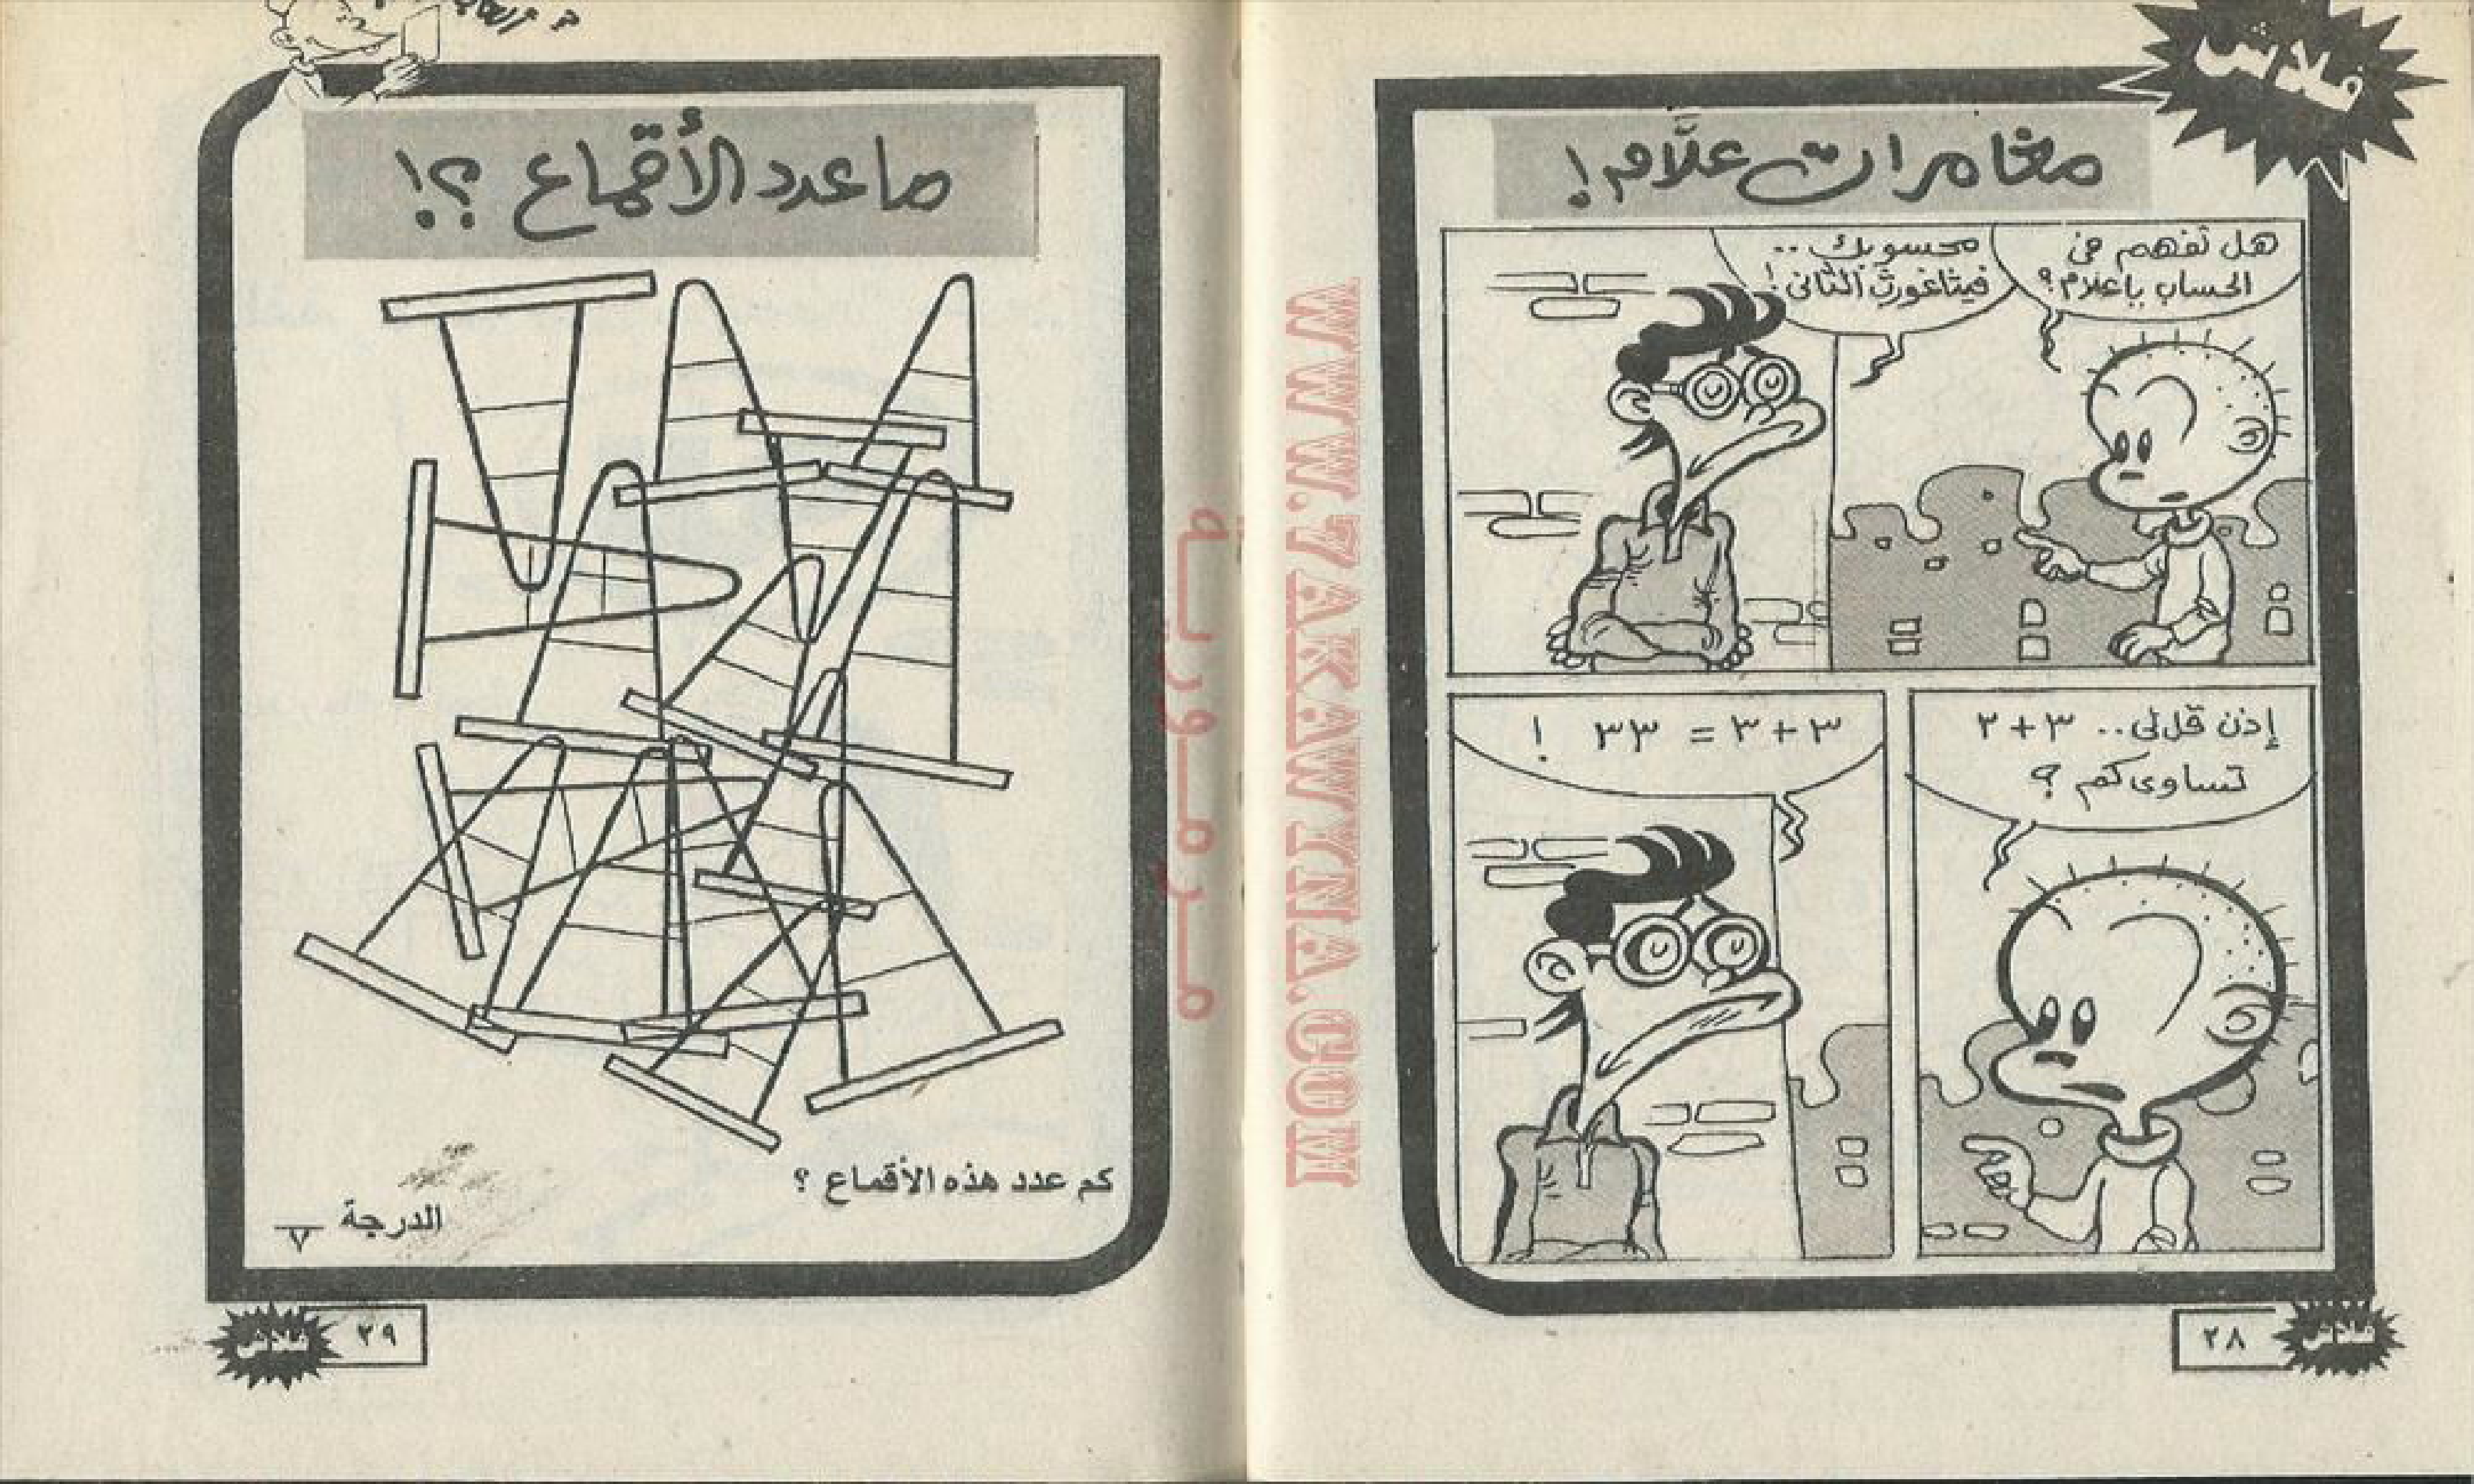 فلاش
مغامرات علّام!
هل تفهم فى
الحساب ياعلام؟
محسوبك..
فيثاغورث الثانى!
إذن قل لى.. ٣+٣
تساوى كم ؟
٣+٣ = ٣٣ !
٢٨
WWW.7AKAWYINA.COM
ما عدد الأقماع ؟!
كم عدد هذه الأقماع ؟
الدرجة
٧
٢٩